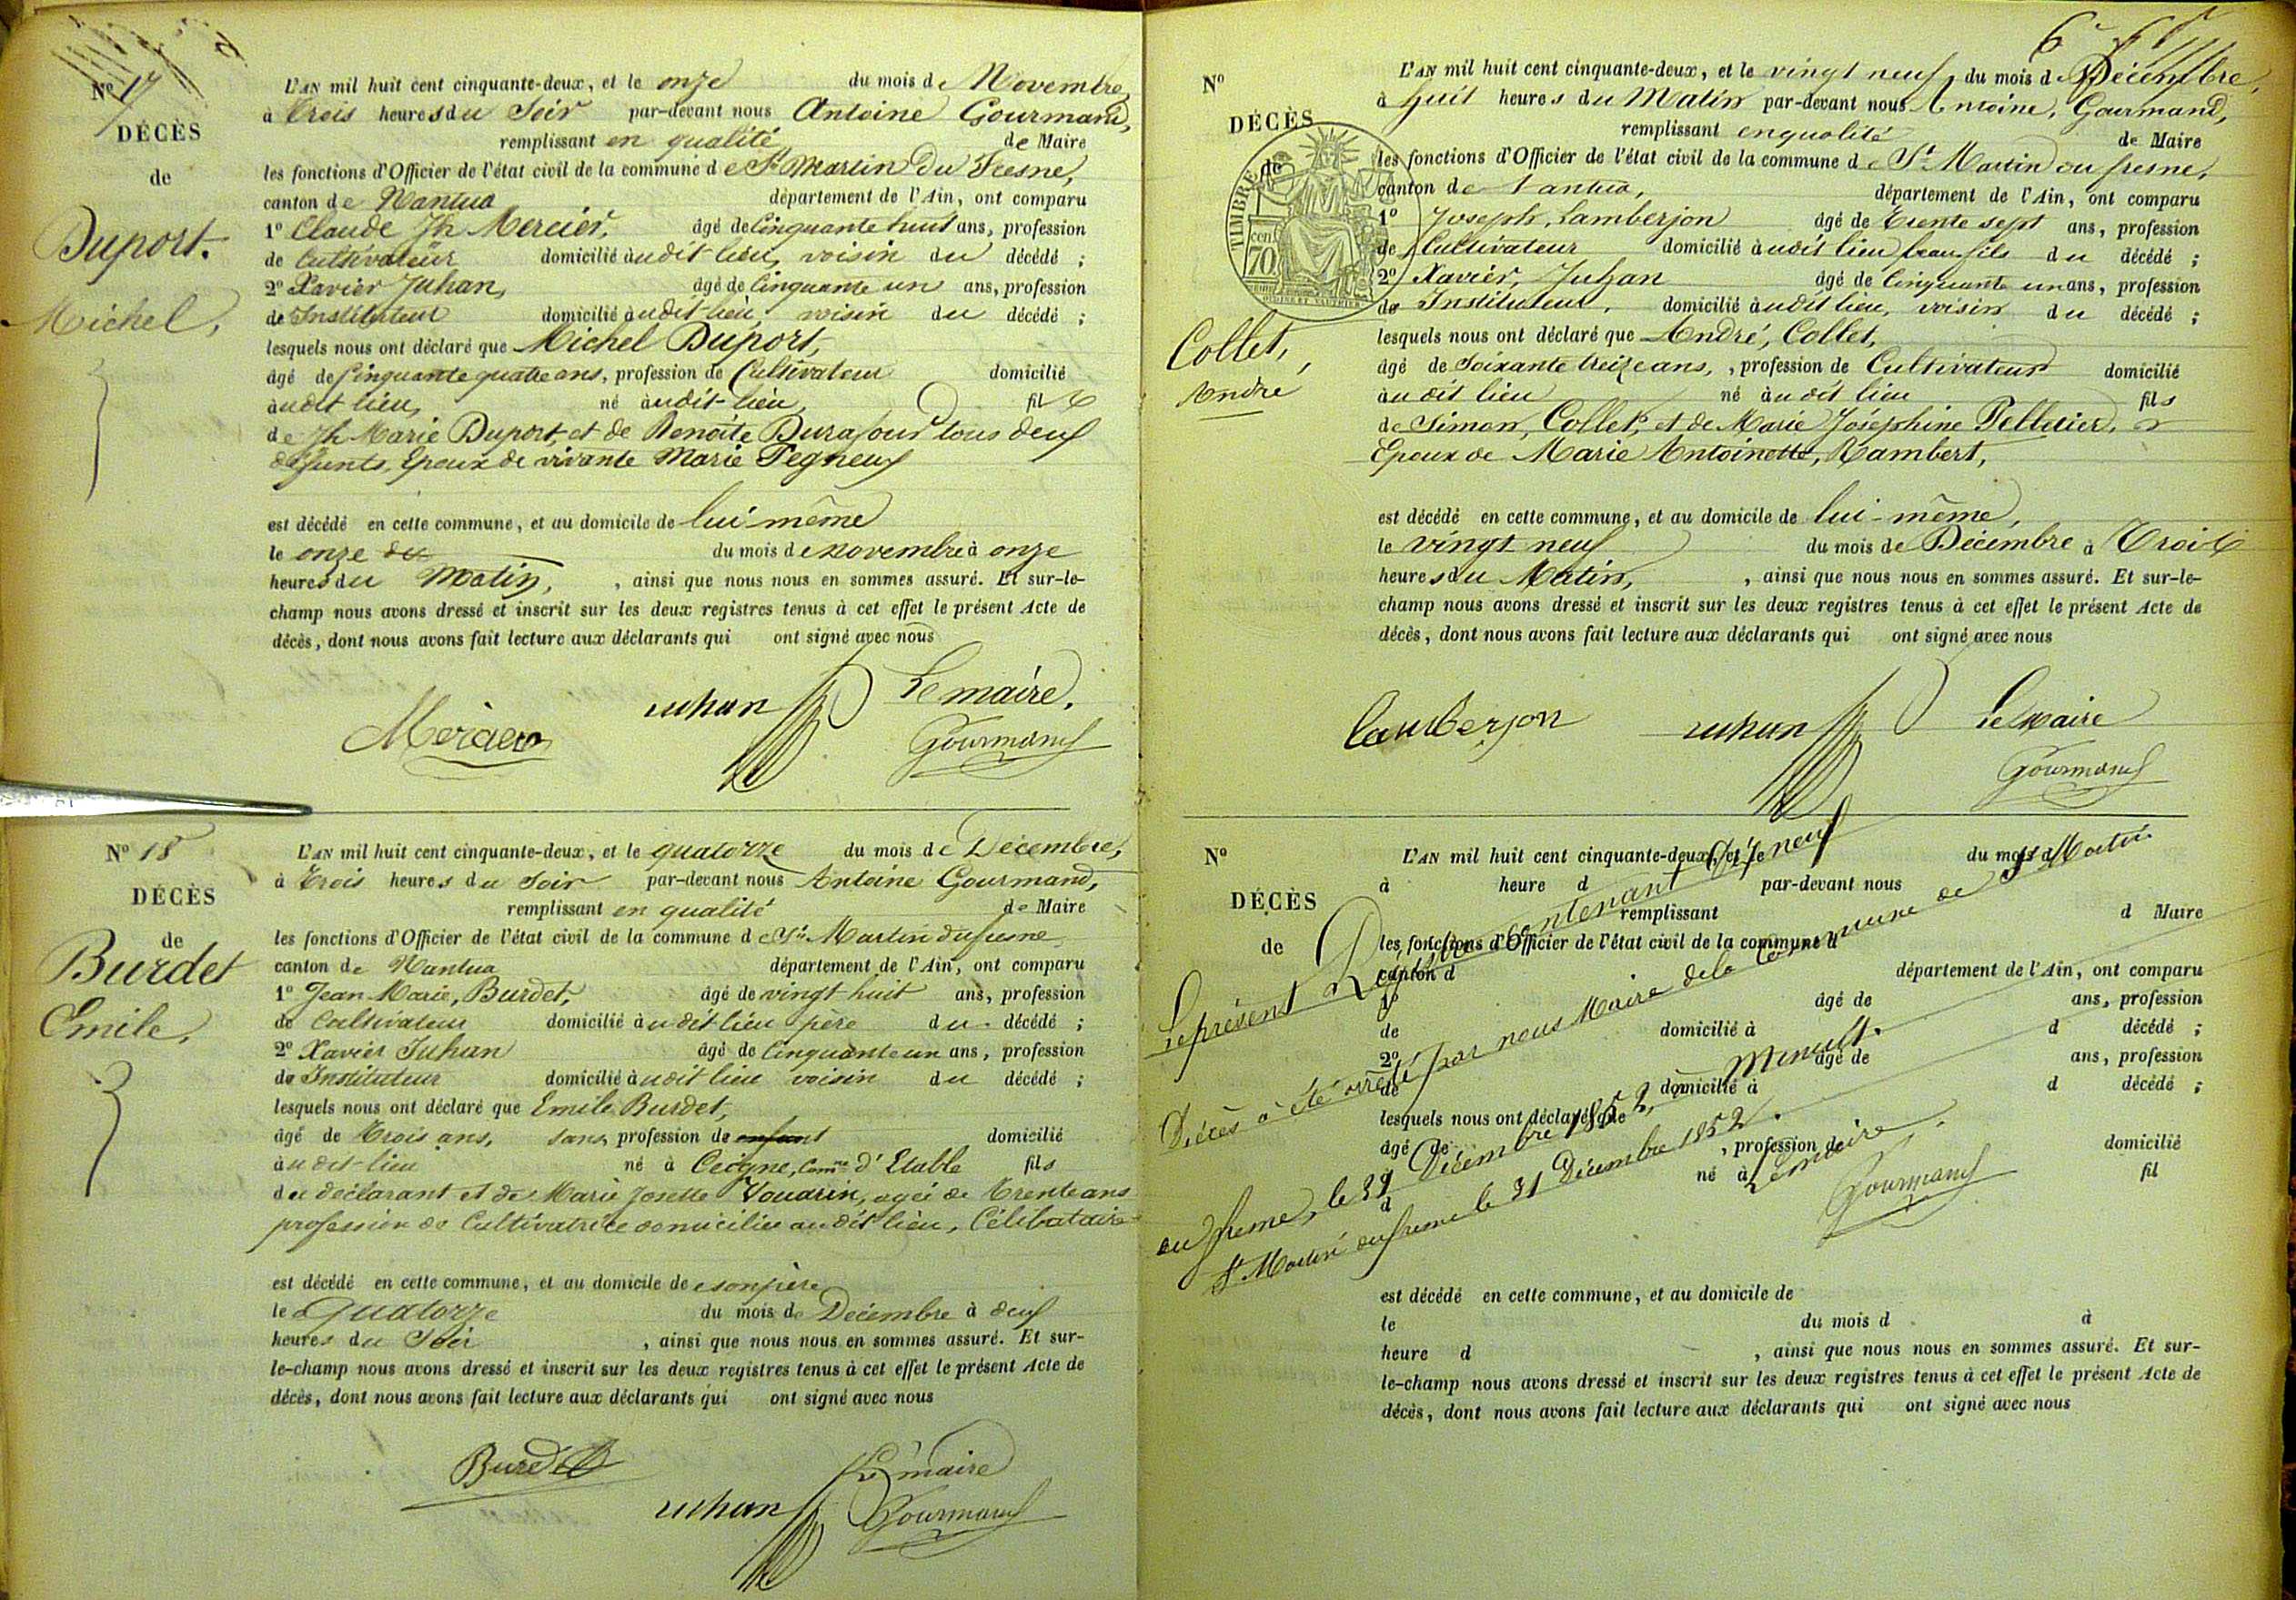 Nº 17
DÉCÈS
de
Duport.
Michel,
L'AN mil huit cent cinquante-deux, et le onze du mois de Novembre,
à Trois heures du Soir par-devant nous Antoine Gourmand,
remplissant en qualité de Maire
les fonctions d'Officier de l'état civil de la commune de St Martin Du Fresne,
canton de Nantua département de l'Ain, ont comparu
1º Claude Jh Mercier, âgé de Cinquante huit ans, profession
de Cultivateur domicilié audit lieu, voisin du décédé ;
2º Xavier Juhan, âgé de Cinquante un ans, profession
de Instituteur domicilié audit lieu, voisin du décédé ;
lesquels nous ont déclaré que Michel Duport,
âgé de Cinquante quatre ans, profession de Cultivateur domicilié
audit lieu, né audit lieu, fils
de Jh Marie Duport, et de Benoite Durafour tous deux
défunts, Epoux de vivante Marie Pegneux
est décédé en cette commune, et au domicile de lui même
le onze du du mois de novembre à onze
heures du Matin, , ainsi que nous nous en sommes assuré. Et sur-le-
champ nous avons dressé et inscrit sur les deux registres tenus à cet effet le présent Acte de
décès, dont nous avons fait lecture aux déclarants qui ont signé avec nous
Mercier Juhan Le maire,
Gourmand
Nº 18
DÉCÈS
de
Burdet
Emile,
L'AN mil huit cent cinquante-deux, et le quatorze du mois de Décembre,
à Trois heures du Soir par-devant nous Antoine Gourmand,
remplissant en qualité de Maire
les fonctions d'Officier de l'état civil de la commune de St Martin du fresne
canton de Nantua département de l'Ain, ont comparu
1º Jean Marie, Burdet, âgé de vingt huit ans, profession
de Cultivateur domicilié audit lieu père du décédé ;
2º Xavier Juhan âgé de Cinquante un ans, profession
de Instituteur domicilié audit lieu voisin du décédé ;
lesquels nous ont déclaré que Emile Burdet,
âgé de Trois ans, sans profession de enfant domicilié
audit lieu né à Ceigne, Comne d'Etable fils
du déclarant et de Marie Josette Vouarin, agée de Trente ans
profession de Cultivatrice domiciliée audit lieu, Célibataire
est décédé en cette commune, et au domicile de son père
le Quatorze du mois de Décembre à deux
heures du Soir , ainsi que nous nous en sommes assuré. Et sur-
le-champ nous avons dressé et inscrit sur les deux registres tenus à cet effet le présent Acte de
décès, dont nous avons fait lecture aux déclarants qui ont signé avec nous
Burdet Le maire
Juhan Gourmand
Nº
DÉCÈS
de
TIMBRE
cent
70
Collet,
André
L'AN mil huit cent cinquante-deux, et le vingt neuf, du mois de Décembre,
à huit heures du Matin par-devant nous Antoine, Gourmand,
remplissant en qualité de Maire
les fonctions d'Officier de l'état civil de la commune de St Martin du fresne,
canton de Nantua, département de l'Ain, ont comparu
1º Joseph, Lamberjon âgé de Trente sept ans, profession
de Cultivateur domicilié audit lieu beau fils du décédé ;
2º Xavier, Juhan âgé de Cinquante un ans, profession
de Instituteur, domicilié audit lieu, voisin du décédé ;
lesquels nous ont déclaré que André, Collet,
âgé de soixante treize ans, , profession de Cultivateur domicilié
audit lieu né audit lieu fils
de Simon, Collet, et de Marie Joséphine Pelletier,
Epoux de Marie Antoinette, Rambert,
est décédé en cette commune, et au domicile de lui-même,
le vingt neuf du mois de Décembre à Trois
heures du Matin, , ainsi que nous nous en sommes assuré. Et sur-le-
champ nous avons dressé et inscrit sur les deux registres tenus à cet effet le présent Acte de
décès, dont nous avons fait lecture aux déclarants qui ont signé avec nous
Lamberjon Juhan Le Maire
Gourmand
Nº
DÉCÈS
de
L'AN mil huit cent cinquante-deux, et le du mois d
à heure d par-devant nous
remplissant d Maire
les fonctions d'Officier de l'état civil de la commune d
canton d département de l'Ain, ont comparu
1º âgé de ans, profession
de domicilié à d décédé ;
2º âgé de ans, profession
de domicilié à d décédé ;
lesquels nous ont déclaré que
âgé de , profession de domicilié
né à fil
d
Le présent Registre contenant Dix neuf
Décès a été arrêté par nous Maire de la Commune de St Martin
du fresne, le 31 Décembre 1852, Minuit.
St Martin du fresne le 31 Décembre 1852.
Le maire
Gourmand
est décédé en cette commune, et au domicile de
le du mois d à
heure d , ainsi que nous nous en sommes assuré. Et sur-
le-champ nous avons dressé et inscrit sur les deux registres tenus à cet effet le présent Acte de
décès, dont nous avons fait lecture aux déclarants qui ont signé avec nous